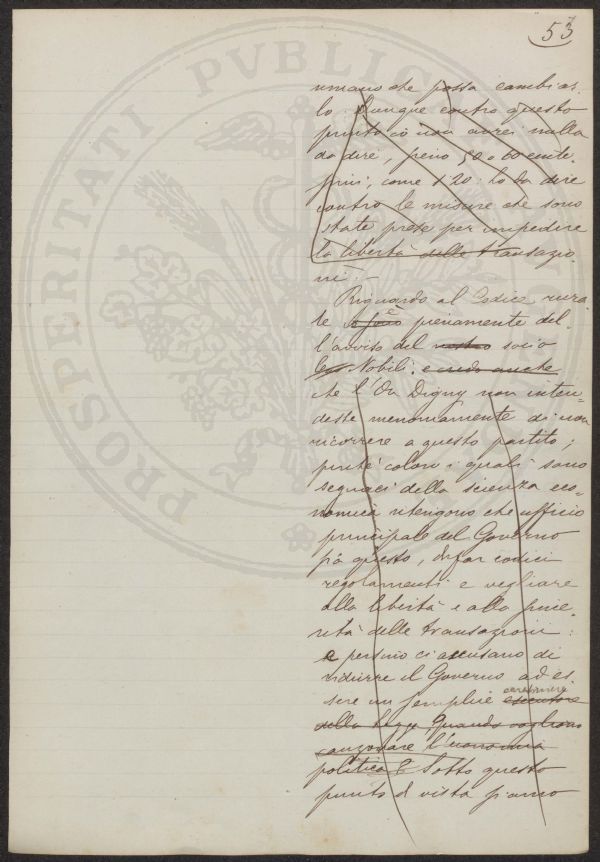 53
umano che possa cambiar-
lo. Dunque contro questo
punto io non avrei nulla
da dire, siano 50 o 60 cente-
simi, come 1.20: ho da dire
contro le misure che sono
state prese per impedire
la libertà delle transazio-
ni. -
Riguardo al Codice rura-
le è pienamente del-
l'avviso del nostro socio
Nobili. e credo anche
che l'On Digny non inten-
desse menomamente di non
ricorrere a questo partito;
perché coloro i quali sono
seguaci della scienza eco-
nomica ritengono che ufficio
principale del Governo
sia questo, di far codici
regolamenti e vegliare
alla libertà e alla since-
rità delle transazioni:
e persino ci accusano di
ridurre il Governo ad es-
carabiniere
sere un semplice esecutore
della legge quando vogliono
canzonare l'economia
politica E Sotto questo
punto di vista siamo
PROSPERITATI PVBLIC